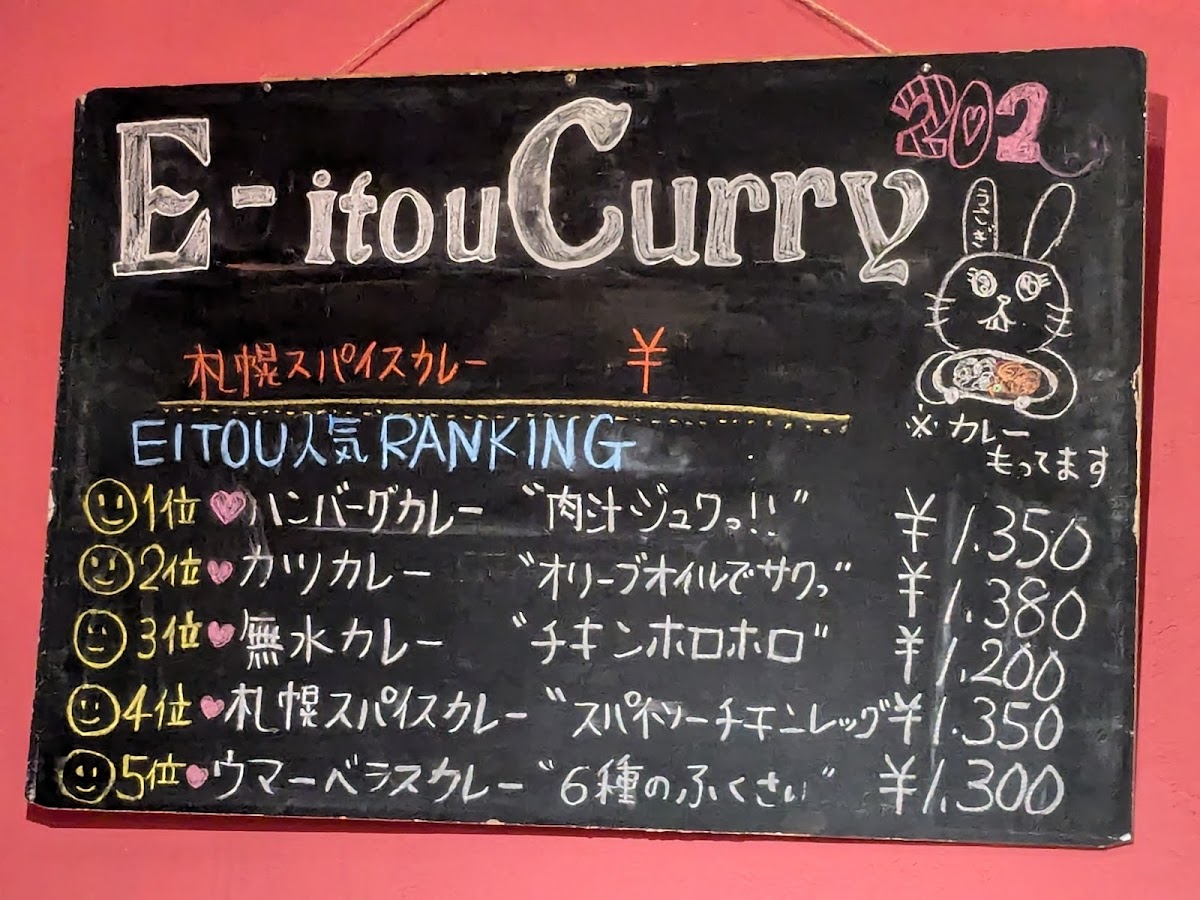 E-itou Curry
202
うんさぎ
札幌スパイスカレー ¥
※カレー
もってます
EITOU人気RANKING
1位 ハンバーグカレー "肉汁ジュワっ!!" ¥1.350
2位 カツカレー "オリーブオイルでサクっ" ¥1.380
3位 無水カレー "チキンホロホロ" ¥1.200
4位 札幌スパイスカレー "スパイシーチキンレッグ" ¥1.350
5位 ウマーベラスカレー "6種のふくさい" ¥1.300